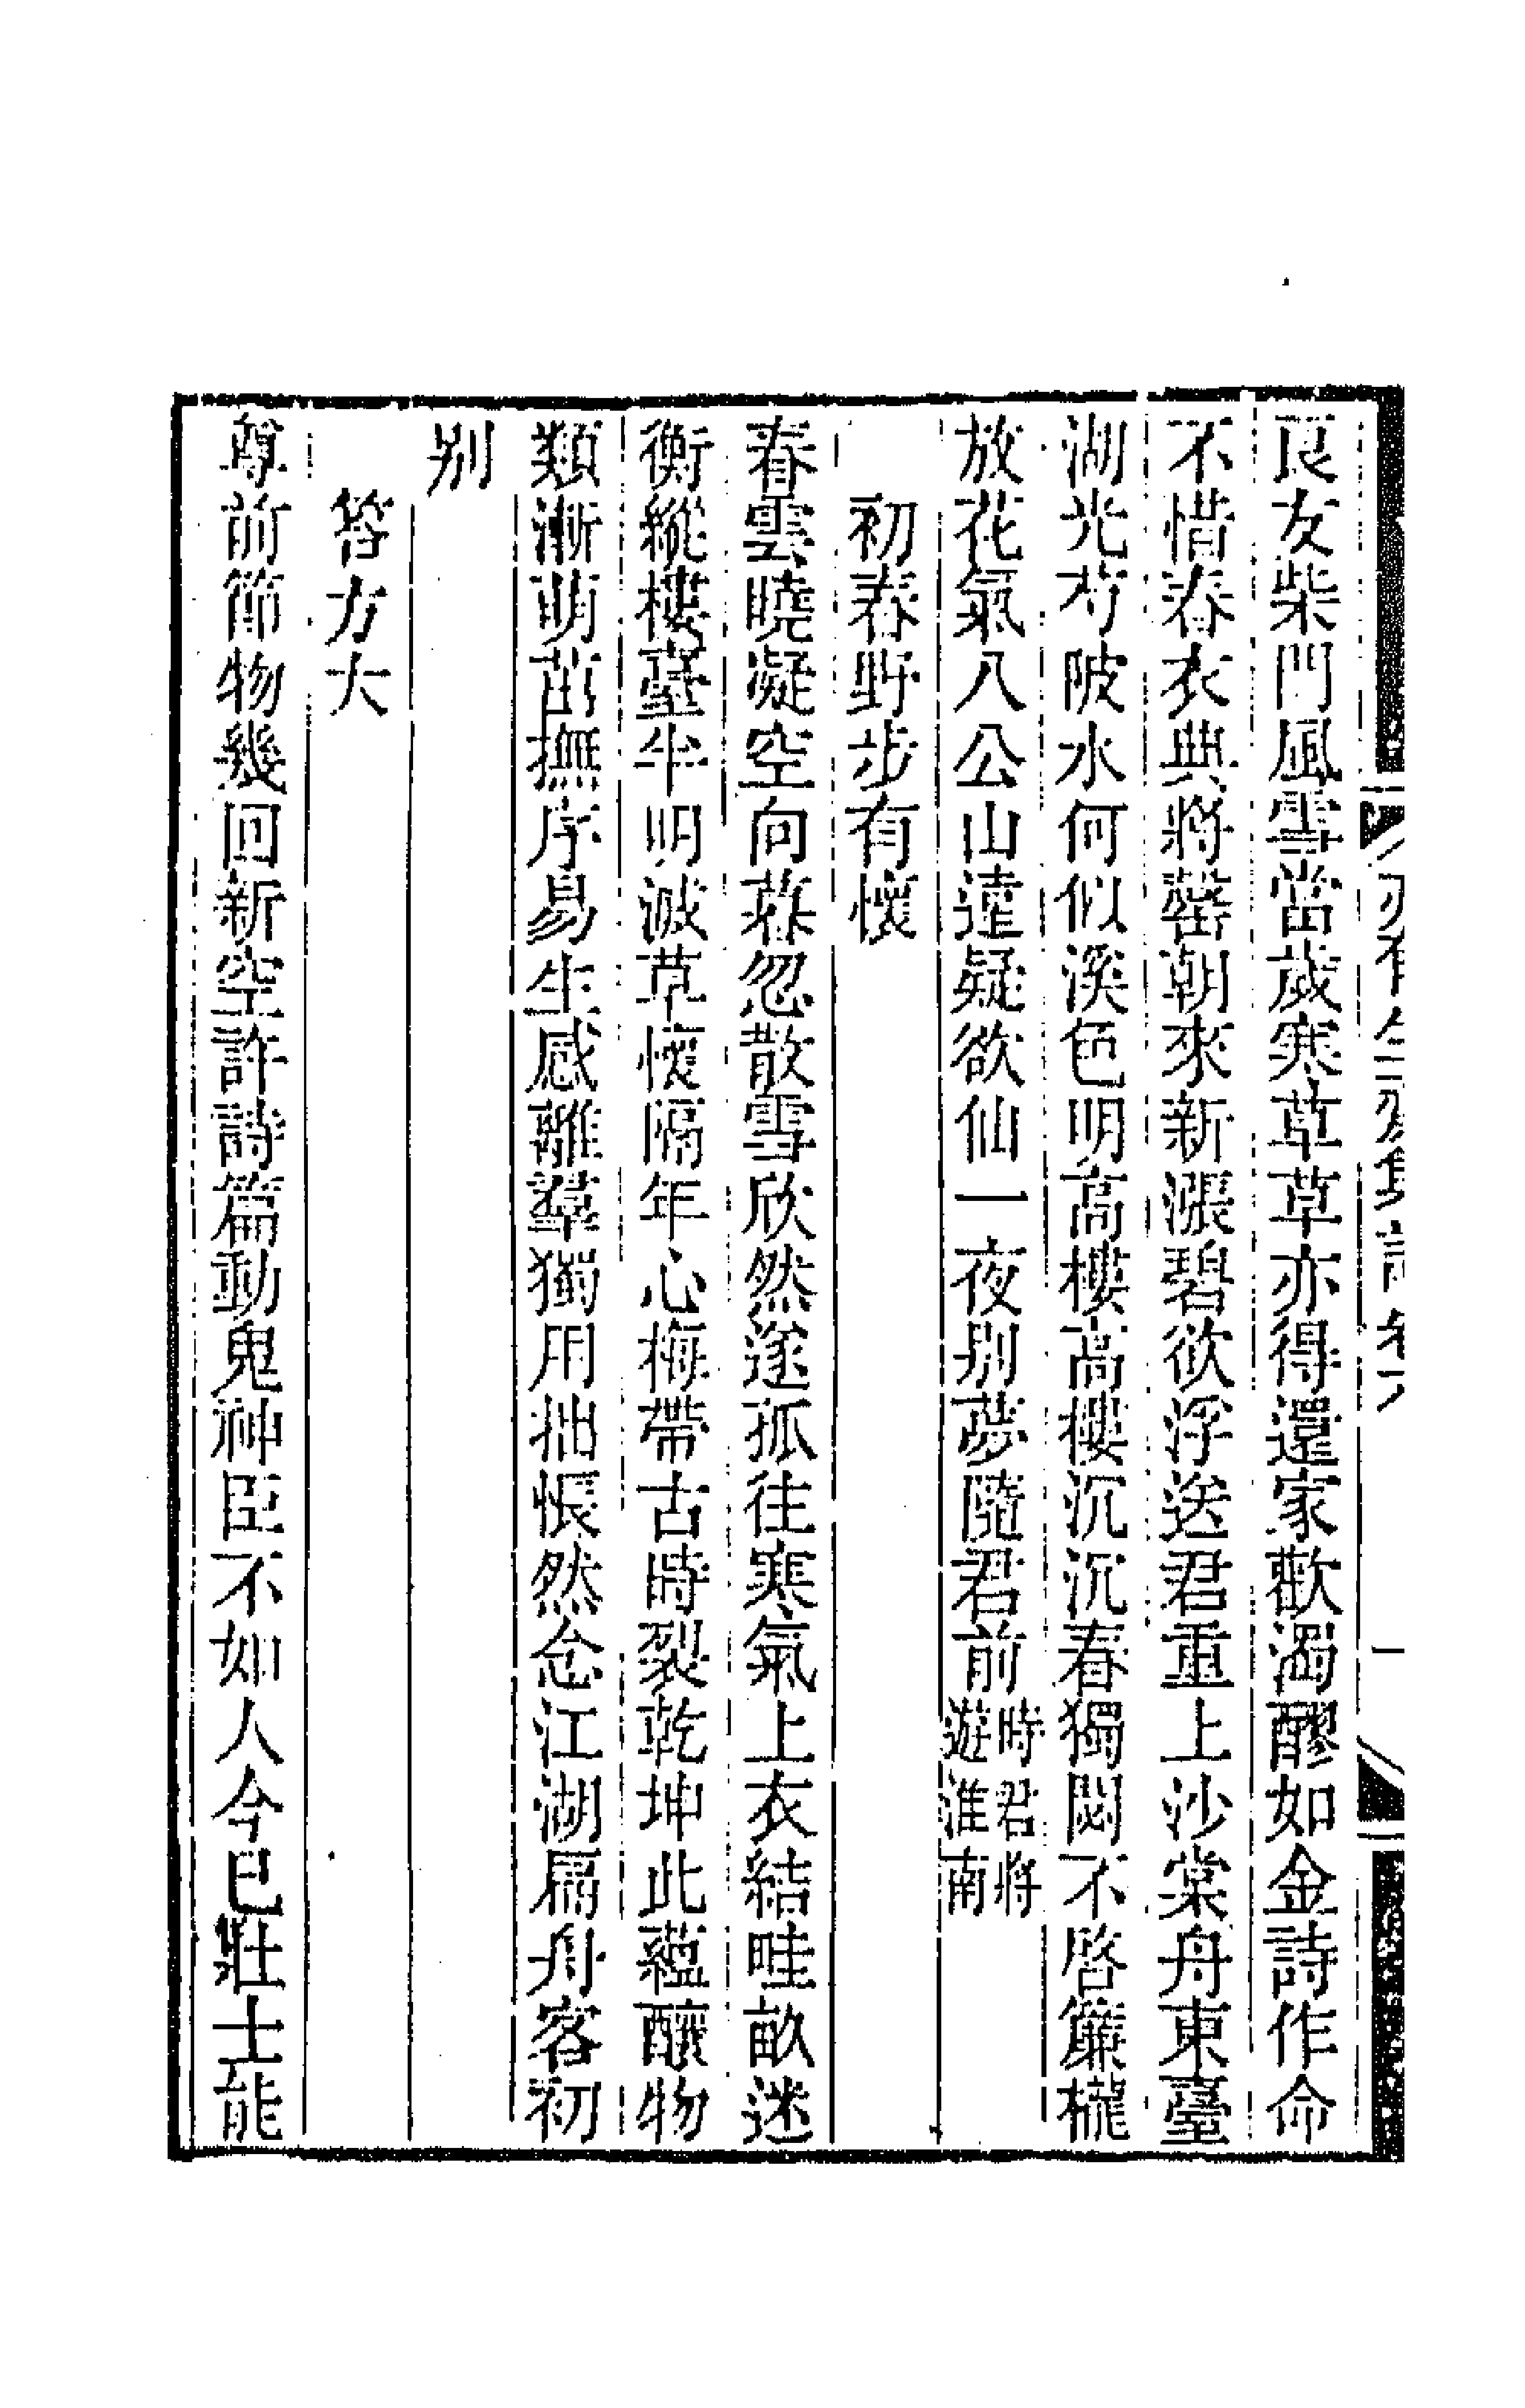 良友柴門風雪當歲寒草草亦得還家歡濁醪如金詩作命
不惜春衣典將罄朝來新漲碧欲浮送君重上沙棠舟東臺
湖光芍陂水何似溪色明高樓高樓沉沉春獨閟不啓簾櫳
放花氣八公山遠疑欲仙一夜别夢隨君前時君將遊淮南
初春野步有懷
春雲曉凝空向暮忽散雪欣然遂孤往寒氣上衣結畦畝迷
衡縱樓臺半明滅草懷隔年心梅帶古時裂乾坤此蘊釀物
類漸萌茁撫序易生感離羣獨用拙悵然念江湖扁舟客初
别
答方大
尊前節物幾回新空許詩篇動鬼神臣不如人今已壯士能